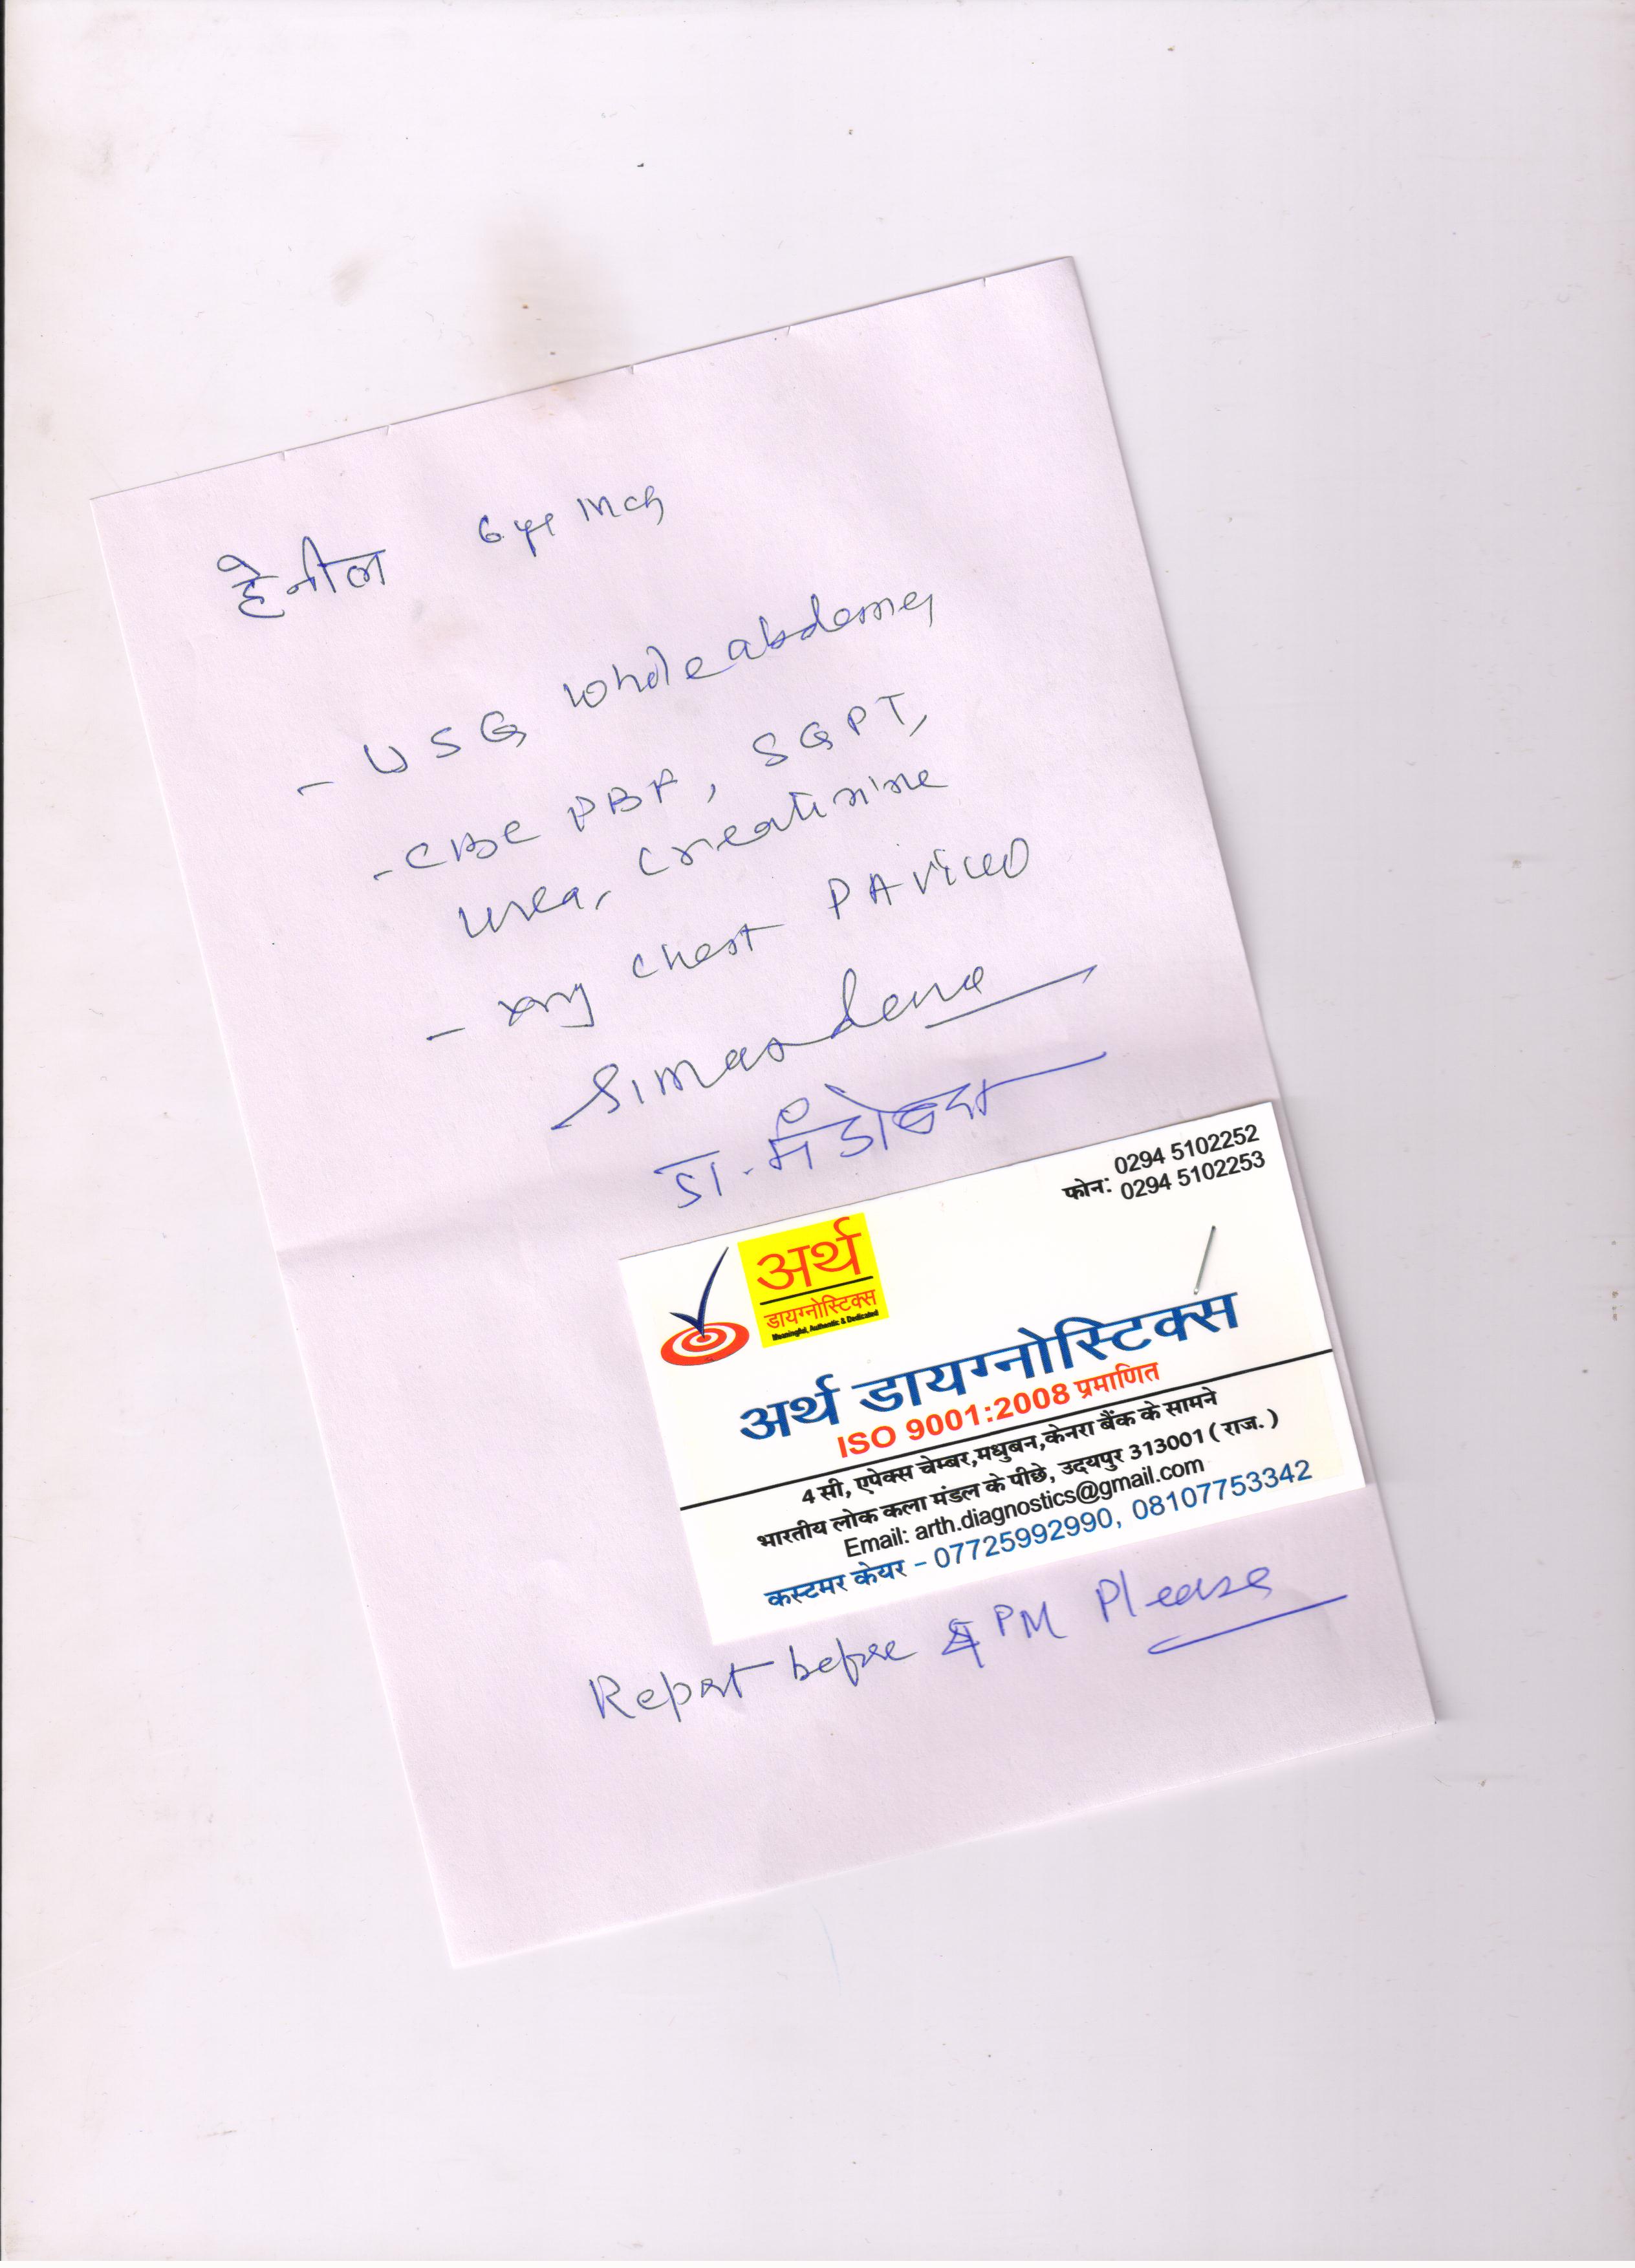 हेनील 6 yr Mch
- USG whole abdomen
- CBC PBF, SGPT,
urea, creatinine
- xray chest PA view
डा. मँडोवरा
फोन: 0294 5102252
0294 5102253
अर्थ
डायग्नोस्टिक्स
Meaningful, Authentic & Dedicated
अर्थ डायग्नोस्टिक्स
ISO 9001:2008 प्रमाणित
4 सी, एपेक्स चेम्बर,मधुबन,केनरा बैंक के सामने
भारतीय लोक कला मंडल के पीछे, उदयपुर 313001 ( राज. )
Email: arth.diagnostics@gmail.com
कस्टमर केयर - 07725992990, 08107753342
Report before 4 PM Please